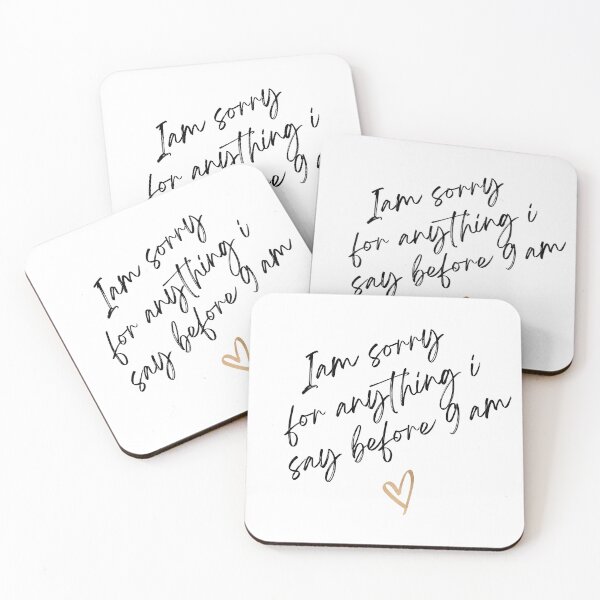 Iam sorry
for anything i
9
Iam sorry
for anything i
say before 9 am
Iam sorry
for anything i
say before 9 am
Iam sorry
for anything i
say before 9 am